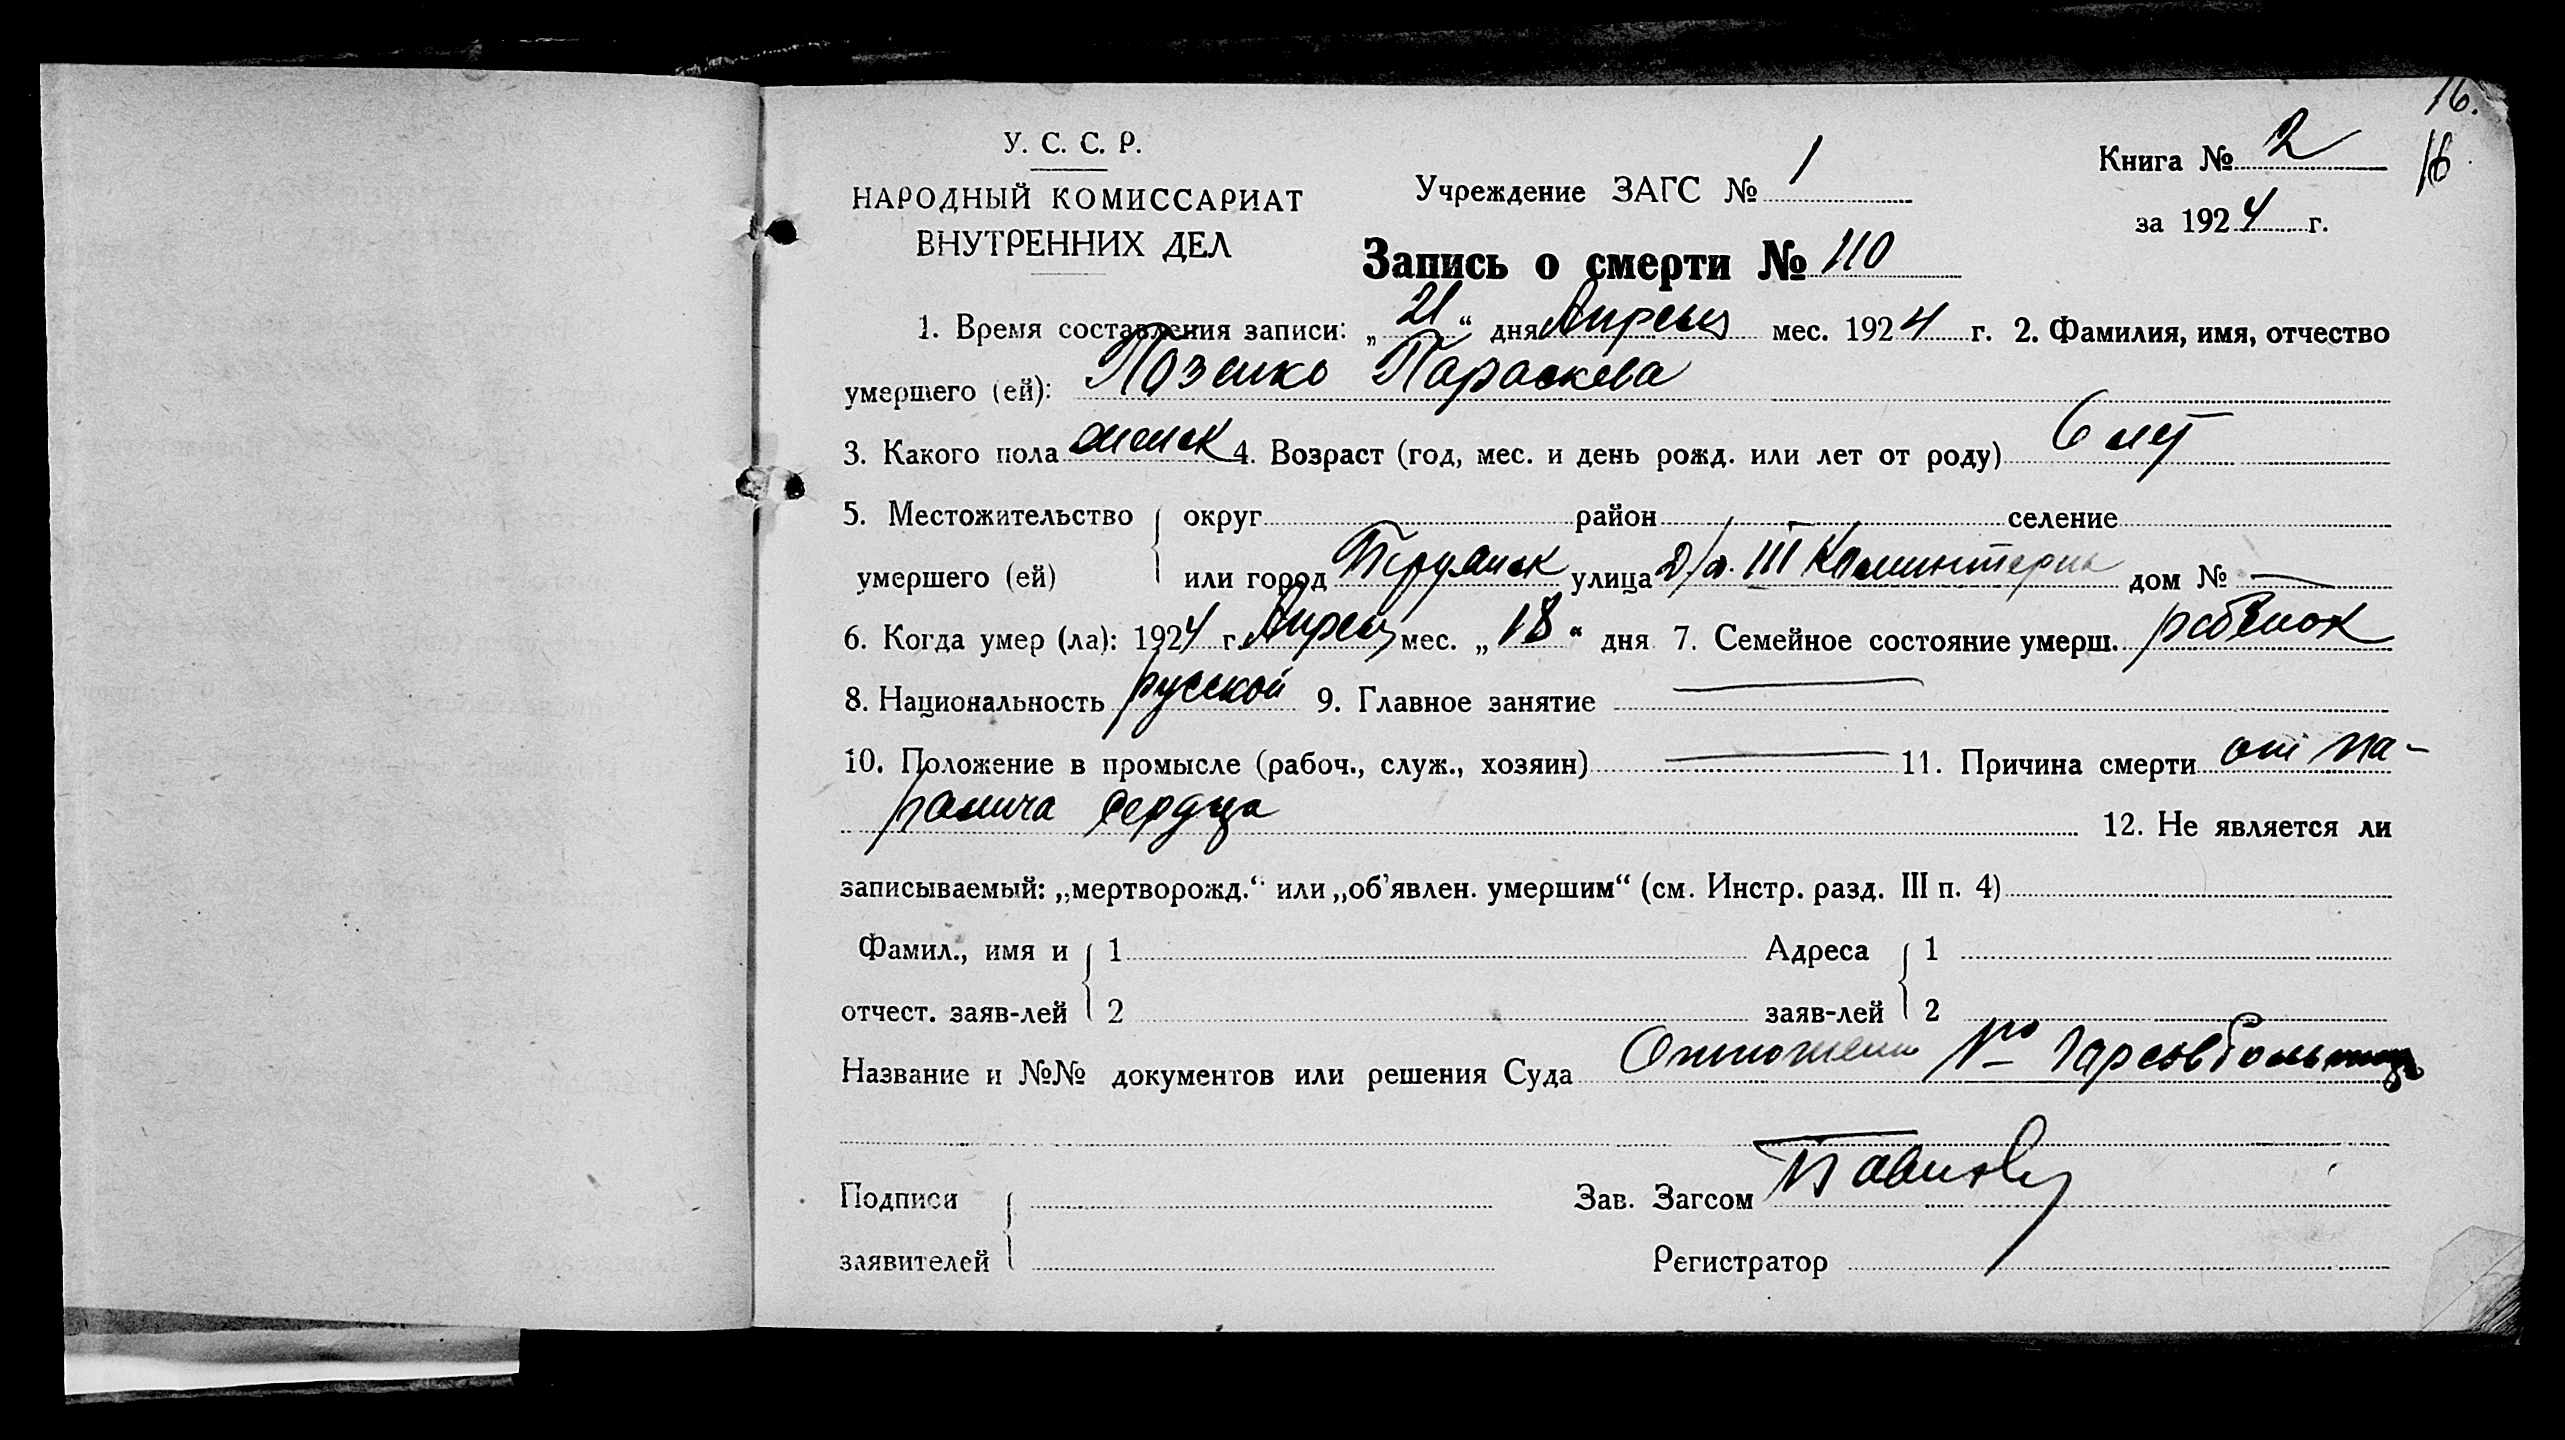 16.
У. С. С. Р.
Книга № 2
16
НАРОДНЫЙ КОМИССАРИАТ
ВНУТРЕННИХ ДЕЛ
Учреждение ЗАГС № 1
за 1924 г.
Запись о смерти № 110
1. Время составления записи: „21“ дня Апреля мес. 1924 г. 2. Фамилия, имя, отчество
умершего (ей): Позенко Параскева
3. Какого пола женск 4. Возраст (год, мес. и день рожд. или лет от роду) 6 лет
5. Местожительство округ район селение
умершего (ей) или город улица д/д. III Коминтерна дом № —
6. Когда умер (ла): 1924 г. Апреля мес. „18“ дня 7. Семейное состояние умерш. ребенок
8. Национальность русской 9. Главное занятие —
10. Положение в промысле (рабоч., служ., хозяин) — 11. Причина смерти от па-
ралича сердца 12. Не является ли
записываемый: „мертворожд.“ или „об’явлен. умершим“ (см. Инстр. разд. III п. 4)
Фамил., имя и 1 Адреса 1
отчест. заяв-лей 2 заяв-лей 2
Название и №№ документов или решения Суда Отношение №
Подписи Зав. Загсом
заявителей Регистратор